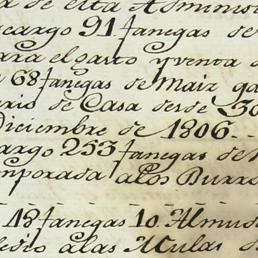 de esta Adminis
cargo 91 fanegas de
para el gasto y venta d
68 fanegas de Maiz ga
de Casa desde 30
Diciembre de 1806.
cargo 253 fanegas de
temporada a los Burro
13 fanegas 10 Almud
medio a las Mulas d